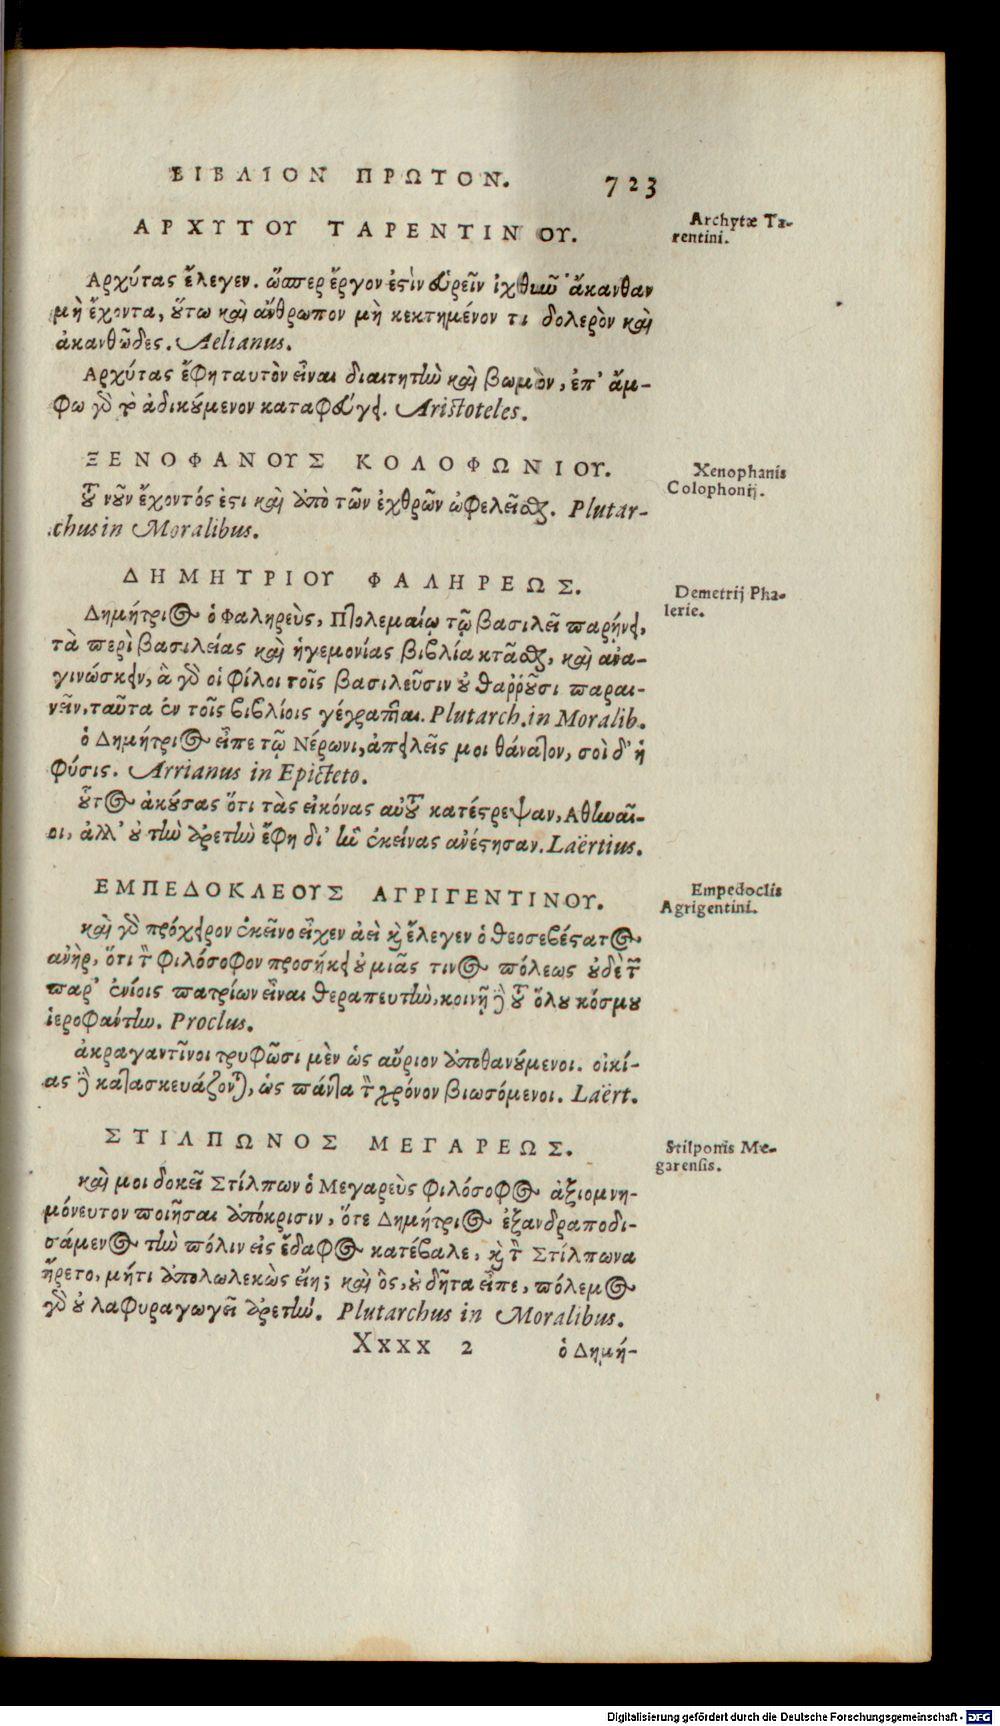 ΒΙΒΛΙΟΝ ΠΡΩΤΟΝ. 723
ΑΡΧΥΤΟΥ ΤΑΡΕΝΤΙΝΟΥ.
Archytæ Ta-
rentini.
Αρχύτας ἔλεγεν. ὥσπερ ἔργον ἐστὶν εὑρεῖν ἰχθιὺ ἄκανθαν
μὴ ἔχοντα, ὕτω καὶ ἄνθρωπον μὴ κεκτημένον τι δολερὸν καὶ
ἀκανθῶδες. Aelianus.
Αρχύτας ἔφη ταυτὸν εἶναι διαιτητὴν καὶ βωμὸν, ἐπ' ἄμ-
φω γὸ τὸ ἀδικούμενον καταφεύγει. Aristoteles.
ΞΕΝΟΦΑΝΟΥΣ ΚΟΛΟΦΩΝΙΟΥ.
Xenophanis
Colophonij.
τοῦ νοῦν ἔχοντός ἐστι καὶ ἀπὸ τῶν ἐχθρῶν ὠφελεῖσθαι. Plutar-
chus in Moralibus.
ΔΗΜΗΤΡΙΟΥ ΦΑΛΗΡΕΩΣ.
Demetrij Pha-
lerie.
Δημήτριος ὁ Φαληρεὺς, Πτολεμαίῳ τῷ βασιλεῖ παρῄνει,
τὰ περὶ βασιλείας καὶ ἡγεμονίας βιβλία κτᾶσθαι, καὶ ἀνα-
γινώσκειν, ἃ γὰρ οἱ φίλοι τοῖς βασιλεῦσιν οὐ θαῤῥοῦσι παραι-
νεῖν, ταῦτα ἐν τοῖς βιβλίοις γέγραπται. Plutarch. in Moralib.
ὁ Δημήτριος εἶπε τῷ Νέρωνι, ἀπειλεῖς μοι θάνατον, σοὶ δ' ἡ
φύσις. Arrianus in Epicteto.
οὗτος ἀκούσας ὅτι τὰς εἰκόνας αὐτοῦ κατέστρεψαν, Αθηναῖ-
οι, ἀλλ' οὐ τὴν ἀρετὴν ἔφη δι' ἣν ἐκείνας ἀνέστησαν. Laërtius.
ΕΜΠΕΔΟΚΛΕΟΥΣ ΑΓΡΙΓΕΝΤΙΝΟΥ.
Empedoclis
Agrigentini.
καὶ γὰρ πρόχειρον ἐκεῖνο εἶχεν ἀεὶ καὶ ἔλεγεν ὁ θεοσεβέστατος
ἀνὴρ, ὅτι τὸν φιλόσοφον προσήκει οὐ μιᾶς τινος πόλεως οὐδὲ τῶν
παρ' ἐνίοις πατρίων εἶναι θεραπευτὴν, κοινῇ δὲ τοῦ ὅλου κόσμου
ἱεροφάντην. Proclus.
ἀκραγαντῖνοι τρυφῶσι μὲν ὡς αὔριον ἀποθανούμενοι. οἰκί-
ας δὲ κατασκευάζονται, ὡς πάντα τὸν χρόνον βιωσόμενοι. Laërt.
ΣΤΙΛΠΩΝΟΣ ΜΕΓΑΡΕΩΣ.
Stilponis Me-
garensis.
καὶ μοι δοκεῖ Στίλπων ὁ Μεγαρεὺς φιλόσοφος ἀξιομνη-
μόνευτον ποιῆσαι ἀπόκρισιν, ὅτε Δημήτριος ἐξανδραποδι-
σάμενος τὴν πόλιν εἰς ἔδαφος κατέβαλε, καὶ τὸν Στίλπωνα
ἤρετο, μήτι ἀπολωλεκὼς εἴη; καὶ ὃς, οὐ δῆτα εἶπε, πόλεμος
γὰρ οὐ λαφυραγωγεῖ ἀρετήν. Plutarchus in Moralibus.
Xxxx 2 ὁ Δημή-
Digitalisierung gefördert durch die Deutsche Forschungsgemeinschaft - DFG